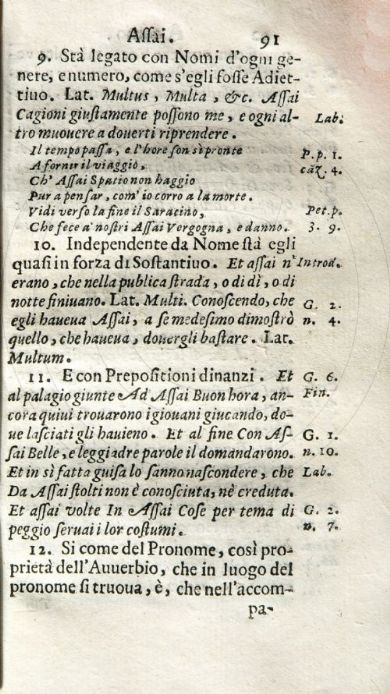 Assai. 91
9. Stà legato con Nomi d'ogni ge-
nere, e numero, come s'egli fosse Adiet-
tiuo. Lat. Multus, Multa, &c. Assai
Cagioni giustamente possono me, e ogni al- Lab.
tro muouere a douerti riprendere.
Il tempo passa, e l'hore son sì pronte P. p. 1.
A fornir il viaggio, caz. 4.
Ch' Assai Spatio non haggio
Pur a pensar, com'io corro a la morte.
Vidi verso la fine il Saracino, Pet. p.
Che fece a' nostri Assai Vergogna, e danno. 3. 9.
10. Independente da Nome stà egli
quasi in forza di Sostantiuo. Et assai n' Introd.
erano, che nella publica strada, o di dì, o di
notte finiuano. Lat. Multi. Conoscendo, che G. 2.
egli haueua Assai, a se medesimo dimostrò n. 4.
quello, che haueua, douergli bastare. Lat.
Multum.
11. E con Prepositioni dinanzi. Et G. 6.
al palagio giunte Ad Assai Buon hora, an- Fin.
cora quiui trouarono i giouani giucando, do-
ue lasciati gli hauieno. Et al fine Con As- G. 1.
sai Belle, e leggiadre parole il domandarono. n. 10.
Et in sì fatta guisa lo sanno nascondere, che Lab.
Da Assai stolti non è conosciuta, nè creduta.
Et assai volte In Assai Cose per tema di G. 2.
peggio seruai i lor costumi. n. 7.
12. Si come del Pronome, così pro-
prietà dell'Auuerbio, che in luogo del
pronome si truoua, è, che nell'accom-
pa-